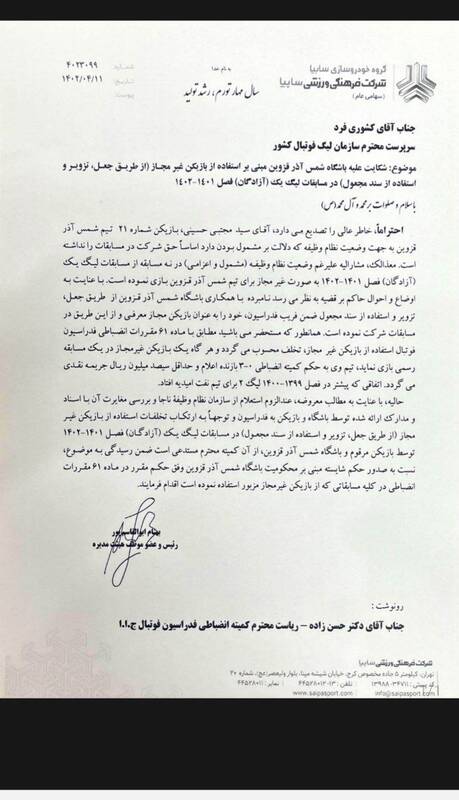 گروه خودروسازی سایپا
شرکت فرهنگی ورزشی سایپا
(سهامی عام)
به نام خدا
سال مهار تورم، رشد تولید
شماره: ۴۰۲۳۰۹۹
تاریخ: ۱۴۰۲/۰۴/۱۱
پیوست:
جناب آقای کشوری فرد
سرپرست محترم سازمان لیگ فوتبال کشور
موضوع: شکایت علیه باشگاه شمس آذر قزوین مبنی بر استفاده از بازیکن غیر مجاز (از طریق جعل، تزویر و
استفاده از سند مجعول) در مسابقات لیگ یک (آزادگان) فصل ۱۴۰۱-۱۴۰۲
با سلام و صلوات بر محمد و آل محمد(ص)
احتراماً، خاطر عالی را تصدیع می دارد، آقای سید مجتبی حسینی، بازیکن شماره ۲۱ تیم شمس آذر
قزوین به جهت وضعیت نظام وظیفه که دلالت بر مشمول بودن دارد اساساً حق شرکت در مسابقات را نداشته
است. معذالک، مشارالیه علیرغم وضعیت نظام وظیفه (مشمول و اعزامی) در نه مسابقه از مسابقات لیگ یک
(آزادگان) فصل ۱۴۰۱-۱۴۰۲ به صورت غیر مجاز برای تیم شمس آذر قزوین بازی نموده است. با عنایت به
اوضاع و احوال حاکم بر قضیه به نظر می رسد نامبرده با همکاری باشگاه شمس آذر قزوین از طریق جعل،
تزویر و استفاده از سند مجعول ضمن فریب فدراسیون، خود را به عنوان بازیکن مجاز معرفی و از این طریق در
مسابقات شرکت نموده است. همانطور که مستحضر می باشید مطابق با ماده ۶۱ مقررات انضباطی فدراسیون
فوتبال استفاده از بازیکن غیر مجاز، تخلف محسوب می گردد و هر گاه یک بازیکن غیرمجاز در یک مسابقه
رسمی بازی نماید، تیم وی به حکم کمیته انضباطی ۰-۳ بازنده اعلام و حداقل سیصد میلیون ریال جریمه نقدی
می گردد. اتفاقی که پیشتر در فصل ۱۳۹۹-۱۴۰۰ لیگ ۲ برای تیم نفت امیدیه افتاد.
حالیه، با عنایت به مطالب معروضه، عندالزوم استعلام از سازمان نظام وظیفۀ ناجا و بررسی مغایرت آن با اسناد
و مدارک ارائه شده توسط باشگاه و بازیکن به فدراسیون و توجهاً به ارتکاب تخلفات استفاده از بازیکن غیر
مجاز (از طریق جعل، تزویر و استفاده از سند مجعول) در مسابقات لیگ یک (آزادگان) فصل ۱۴۰۱-۱۴۰۲
توسط بازیکن مرقوم و باشگاه شمس آذر قزوین، از آن کمیته محترم مستدعی است ضمن رسیدگی به موضوع،
نسبت به صدور حکم شایسته مبنی بر محکومیت باشگاه شمس آذر قزوین وفق حکم مقرر در ماده ۶۱ مقررات
انضباطی در کلیه مسابقاتی که از بازیکن غیرمجاز مزبور استفاده نموده است اقدام فرمایند.
بهنام ابوالقاسم‌پور
رئیس و عضو موظف هیئت مدیره
رونوشت :
جناب آقای دکتر حسن زاده – ریاست محترم کمیته انضباطی فدراسیون فوتبال ج.ا.ا
شرکت فرهنگی ورزشی سایپا
تهران، کیلومتر ۵ جاده مخصوص کرج، خیابان شیشه مینا، بلوار ولیعصر(عج)، شماره ۲۰
کد پستی: ۳۴۷۱۱-۱۳۹۸۸ تلفن: ۱۳-۴۴۵۲۸۰۱۲ نمابر: ۴۴۵۲۸۰۱۱
www.saipasport.com info@saipasport.com